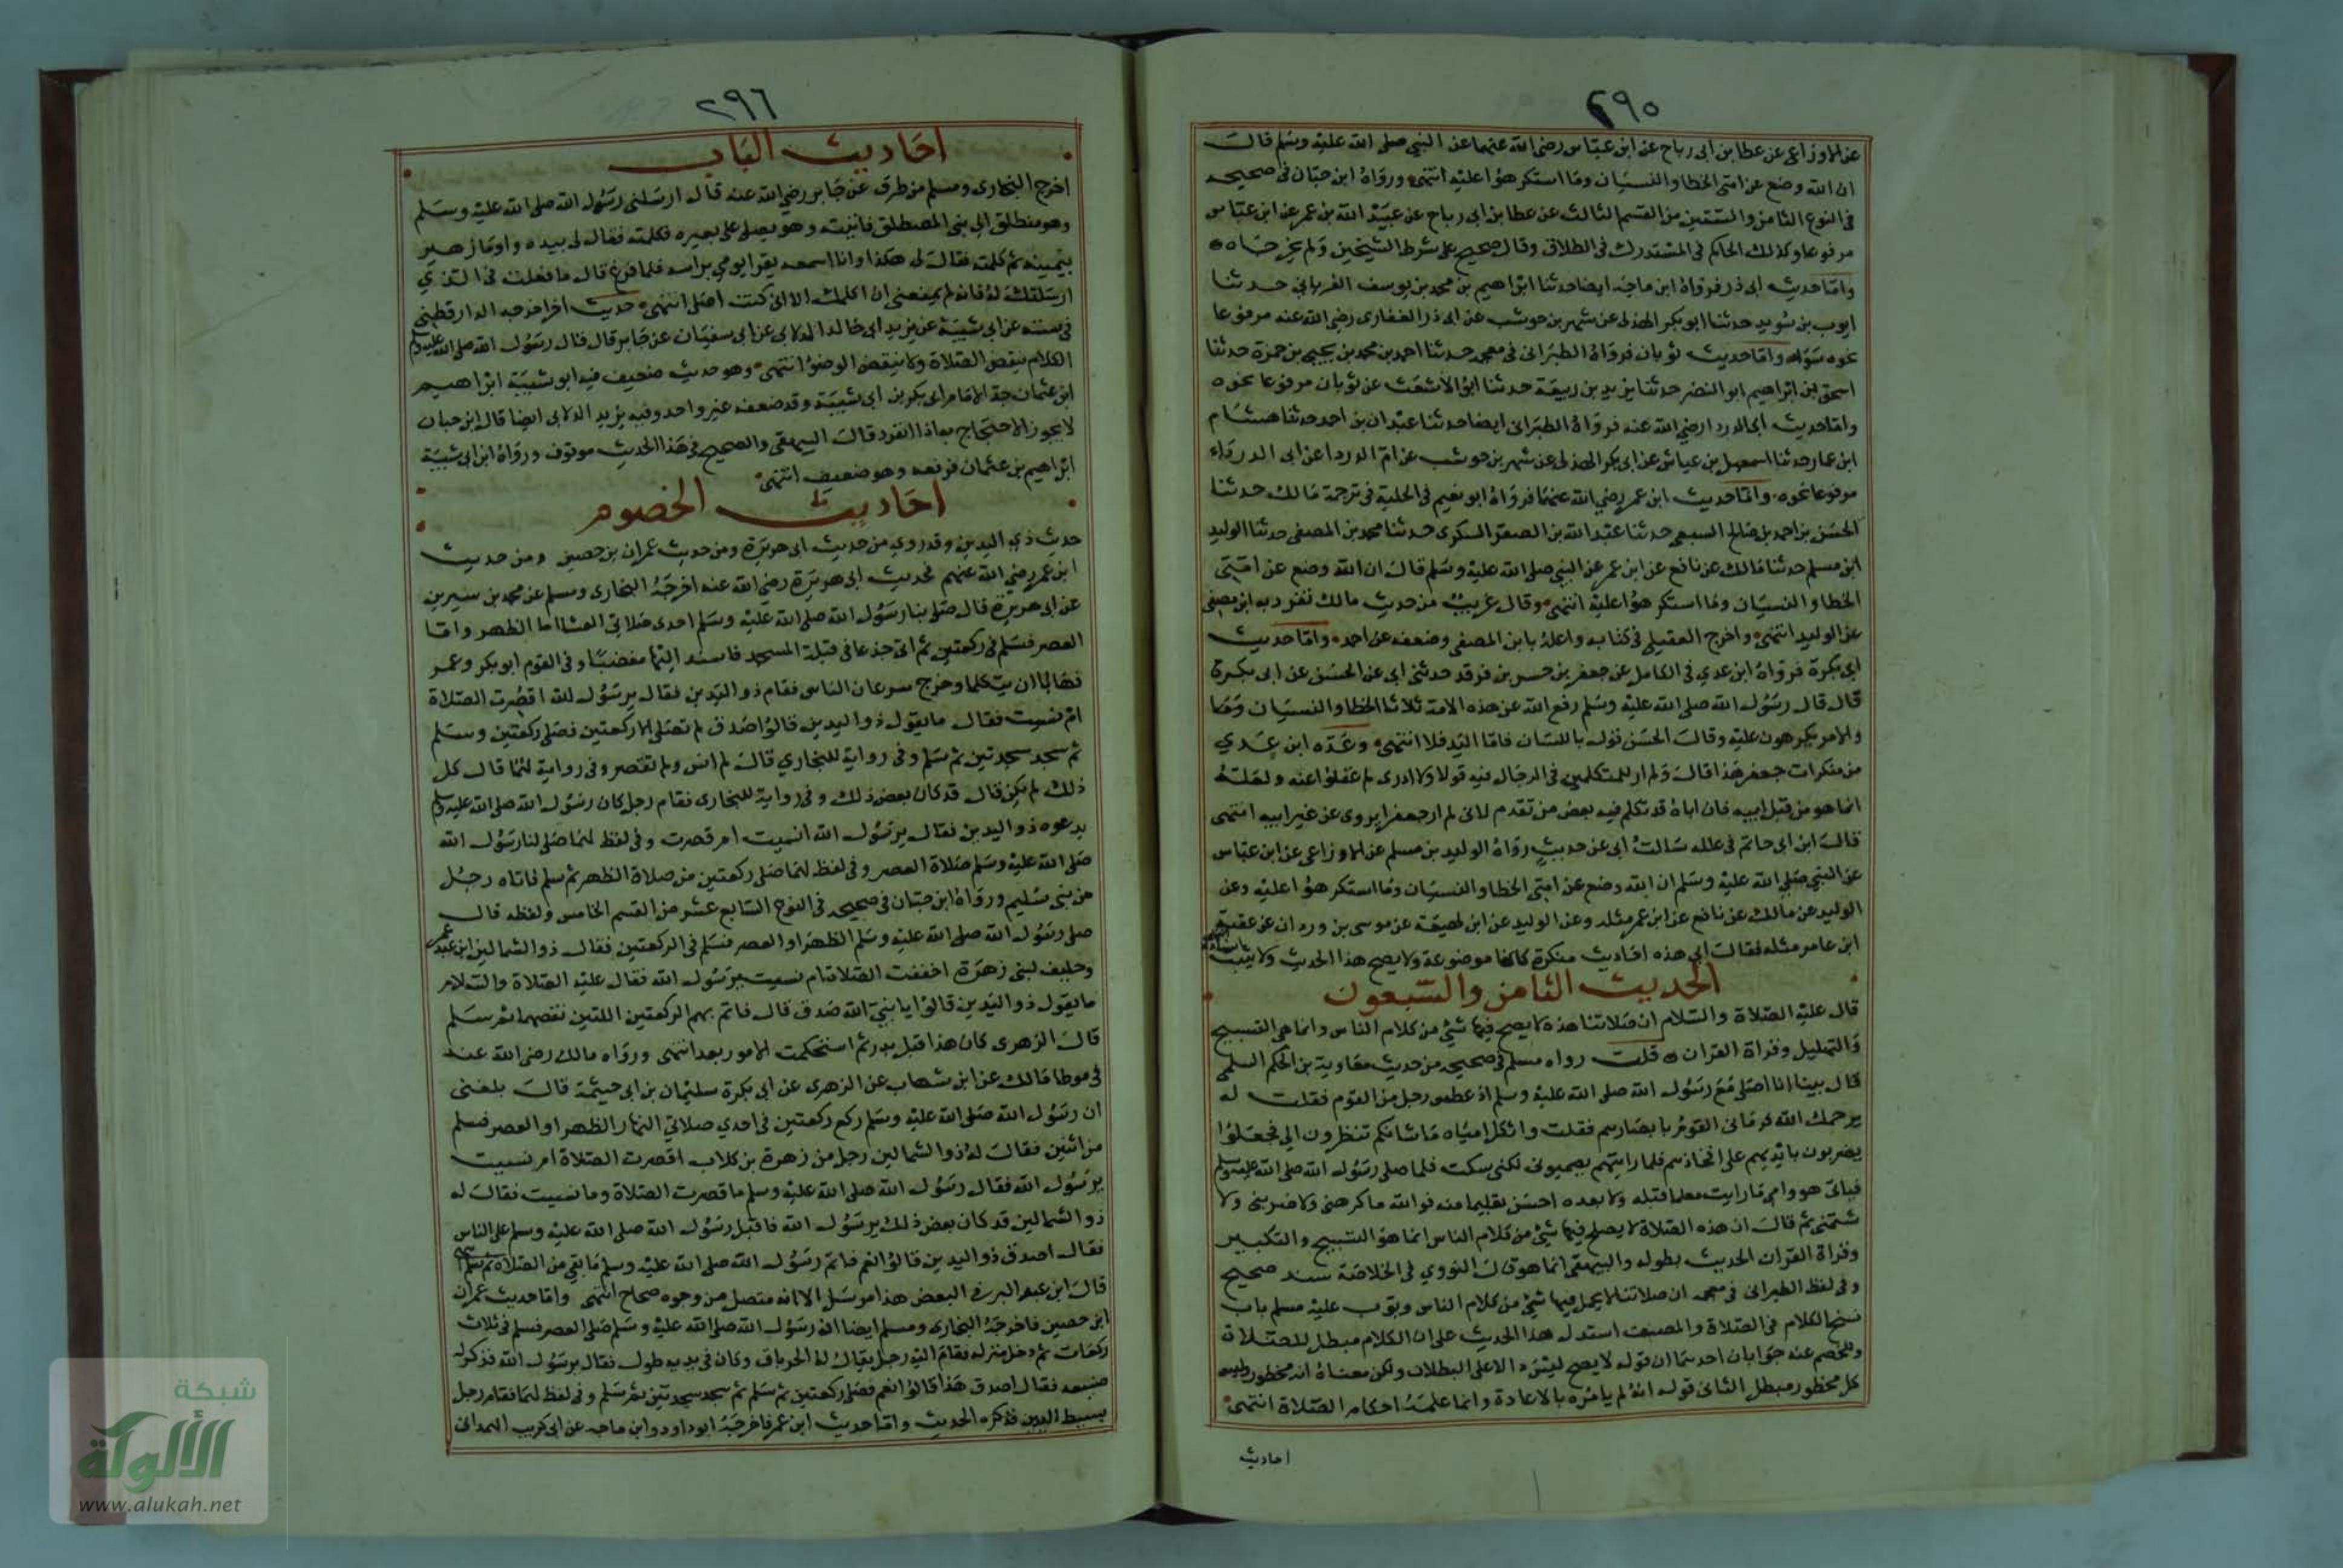 ٢٩٥
عن الاوزاعى عن عطا بن ابى رباح عن ابن عباس رضى الله عنهما عن النبى صلى الله عليه وسلم قال
ان الله وضع عن امتى الخطا والنسيان وما استكرهوا عليه انتهى ورواه ابن حبان فى صحيحه
فى النوع الثامن والستين من القسم الثالث عن عطا بن ابى رباح عن عبيد الله بن عمر عن ابن عباس
مرفوعا وكذلك الحاكم فى المستدرك فى الطلاق وقال صحيح على شرط الشيخين ولم يخرجاه
واما حديث ابى ذر فرواه ابن ماجه ايضا حدثنا ابراهيم بن محمد بن يوسف الفريابي حدثنا
ايوب بن سويد حدثنا ابو بكر الهذلى عن شهر بن حوشب عن ابى ذر الغفارى رضى الله عنه مرفوعا
نحوه سواء واما حديث ثوبان فرواه الطبرانى فى معجمه حدثنا احمد بن محمد بن يحيى بن حمزة حدثنا
اسحق بن ابراهيم ابو النضر حدثنا يزيد بن ربيعة حدثنا ابو الاشعث عن ثوبان مرفوعا نحوه
واما حديث ابى الدردا رضى الله عنه فرواه الطبرانى ايضا حدثنا عبدان بن احمد حدثنا هشام
ابن عمار حدثنا اسمعيل بن عياش عن ابى بكر الهذلى عن شهر بن حوشب عن ام الدردا عن ابى الدرداء
مرفوعا نحوه واما حديث ابن عمر رضى الله عنهما فرواه ابو نعيم فى الحلية فى ترجمة مالك حدثنا
الحسن بن احمد بن صالح السبيعى حدثنا عبد الله بن الصقر السكرى حدثنا محمد بن المصفى حدثنا الوليد
ابن مسلم حدثنا مالك عن نافع عن ابن عمر عن النبى صلى الله عليه وسلم قال ان الله وضع عن امتى
الخطا والنسيان وما استكرهوا عليه انتهى وقال غريب من حديث مالك تفرد به ابن مصفى
عن الوليد انتهى واخرج العقيلى فى كتابه واعله بابن المصفى وضعفه عن احمد واما حديث
ابى بكرة فرواه ابن عدي فى الكامل عن جعفر بن جسر بن فرقد حدثنى ابى عن الحسن عن ابى بكرة
قال قال رسول الله صلى الله عليه وسلم رفع الله عن هذه الامة ثلاثا الخطا والنسيان وما
والامر يكرهون عليه وقال الحسن قول باللسان فاما اليد فلا انتهى وعده ابن عدي
من منكرات جعفر هذا قال ولم ار للمتكلمين فى الرجال فيه قولا ولا ادرى لم غفلوا عنه ولعله
انما هو من قبل ابيه فان اباه قد تكلم فيه بعض من تقدم لانى لم ار جعفرا يروى عن غير ابيه انتهى
قال ابن ابى حاتم فى علله سالت ابى عن حديث رواه الوليد بن مسلم عن الاوزاعى عن ابن عباس
عن النبى صلى الله عليه وسلم ان الله وضع عن امتى الخطا والنسيان وما استكرهوا عليه وعن
الوليد عن مالك عن نافع عن ابن عمر مثله وعن الوليد عن ابن لهيعة عن موسى بن وردان عن عقبة
ابن عامر مثله فقال ابى هذه احاديث منكرة كانها موضوعة ولا يصح هذا الحديث ولا يثبت اسناده
الحديث الثامن والسبعون
قال عليه الصلاة والسلام ان صلاتنا هذه لا يصح فيها شئ من كلام الناس وانما هى التسبيح
والتهليل وقراة القران قلت رواه مسلم فى صحيحه من حديث معاوية بن الحكم السلمى
قال بينا انا اصلى مع رسول الله صلى الله عليه وسلم اذ عطس رجل من القوم فقلت له
يرحمك الله فرمانى القوم بابصارهم فقلت واثكل امياه ما شانكم تنظرون الى فجعلوا
يضربون بايديهم على افخاذهم فلما رايتهم يصمتونى لكنى سكت فلما صلى رسول الله صلى الله عليه وسلم
فبابى هو وامى ما رايت معلما قبله ولا بعده احسن تعليما منه فوالله ما كرهنى ولا ضربنى ولا
شتمنى ثم قال ان هذه الصلاة لا يصلح فيها شئ من كلام الناس انما هو التسبيح والتكبير
وقراة القران الحديث بطوله والبيهقى انما هو قال النووي فى الخلاصة سند صحيح
وفى لفظ الطبرانى فى معجمه ان صلاتنا لا يحل فيها شئ من كلام الناس وبوب عليه مسلم باب
نسخ الكلام فى الصلاة والمصنف استدل بهذا الحديث على ان الكلام مبطل للصلاة
وللخصم عنه جوابان احدهما ان قوله لا يصح ليس دالا على البطلان ولكن معناه انه محظور وليس
كل محظور مبطل الثانى قوله انه لم يامره بالاعادة وانما علمه احكام الصلاة انتهى
احاديث
٢٩٦
احاديث الباب
اخرج البخارى ومسلم من طرق عن جابر رضى الله عنه قال ارسلنى رسول الله صلى الله عليه وسلم
وهو منطلق الى بنى المصطلق فاتيته وهو يصلى على بعيره فكلمته فقال لى بيده واوما زهير
بيمينه ثم كلمته فقال لى هكذا وانا اسمعه يقرا يومي براسه فلما فرغ قال ما فعلت فى الذي
ارسلتك له فانه لم يمنعنى ان اكلمك الا انى كنت اصلى انتهى حديث اخر اخرجه الدارقطنى
فى سننه عن ابى شيبة عن يزيد ابى خالد الدالانى عن ابى سفيان عن جابر قال قال رسول الله صلى الله عليه وسلم
الكلام ينقض الصلاة ولا ينقض الوضؤ انتهى وهو حديث ضعيف فيه ابو شيبة ابراهيم
ابن عثمان جد الامام ابى بكر بن ابى شيبة وقد ضعفه غير واحد وفيه يزيد الدالانى ايضا قال ابن حبان
لا يجوز الاحتجاج به اذا انفرد قال البيهقى والصحيح فى هذا الحديث موقوف ورواه ابن ابى شيبة
ابراهيم بن عثمان فرفعه وهو ضعيف انتهى
احاديث الخصوم
حديث ذي اليدين وقد روي من حديث ابى هريرة ومن حديث عمران بن حصين ومن حديث
ابن عمر رضى الله عنهم فحديث ابى هريرة رضى الله عنه اخرجه البخارى ومسلم عن محمد بن سيرين
عن ابى هريرة قال صلى بنا رسول الله صلى الله عليه وسلم احدى صلاتى العشا اما الظهر واما
العصر فسلم فى ركعتين ثم اتى جذعا فى قبلة المسجد فاستند اليها مغضبا وفى القوم ابو بكر وعمر
فهابا ان يتكلما وخرج سرعان الناس فقام ذو اليدين فقال يرسول الله اقصرت الصلاة
ام نسيت فقال ما يقول ذو اليدين قالوا صدق لم تصلى الا ركعتين فصلى ركعتين وسلم
ثم سجد سجدتين ثم سلم وفى رواية للبخاري قال لم انس ولم تقصر وفى رواية لهما قال كل
ذلك لم يكن قال قد كان بعض ذلك وفى رواية للبخارى فقام رجل كان رسول الله صلى الله عليه وسلم
يدعوه ذو اليدين فقال يرسول الله انسيت ام قصرت وفى لفظ لهما صلى لنا رسول الله
صلى الله عليه وسلم صلاة العصر وفى لفظ لهما صلى ركعتين من صلاة الظهر ثم سلم فاتاه رجل
من بنى سليم ورواه ابن حبان فى صحيحه فى النوع السابع عشر من القسم الخامس ولفظه قال
صلى رسول الله صلى الله عليه وسلم الظهر او العصر فسلم فى الركعتين فقال ذو الشمالين ابن عبد عمرو
وحليف لبنى زهرة اخففت الصلاة ام نسيت يرسول الله فقال عليه الصلاة والسلام
ما يقول ذو اليدين قالوا يا نبى الله صدق قال فاتم بهم الركعتين اللتين نقصهما ثم سلم
قال الزهرى كان هذا قبل بدر ثم استحكمت الامور بعد انتهى ورواه مالك رضى الله عنه
فى موطا مالك عن ابن شهاب عن الزهرى عن ابى بكرة سليمان بن ابى حيثمة قال بلغنى
ان رسول الله صلى الله عليه وسلم ركع ركعتين فى احدي صلاتي النهار الظهر او العصر فسلم
من اثنين فقال له ذو الشمالين رجل من زهرة بن كلاب اقصرت الصلاة ام نسيت
يرسول الله فقال رسول الله صلى الله عليه وسلم ما قصرت الصلاة وما نسيت فقال له
ذو الشمالين قد كان بعض ذلك يرسول الله فاقبل رسول الله صلى الله عليه وسلم على الناس
فقال اصدق ذو اليدين قالوا نعم فاتم رسول الله صلى الله عليه وسلم ما بقى من الصلاة ثم سلم
قال ابن عبد البر فى البعض هذا مرسل الا انه متصل من وجوه صحاح انتهى واما حديث عمران
ابن حصين فاخرجه البخارى ومسلم ايضا ان رسول الله صلى الله عليه وسلم صلى العصر فسلم فى ثلاث
ركعات ثم دخل منزله فقام اليه رجل يقال له الخرباق وكان فى يديه طول فقال يرسول الله فذكر له
صنيعه فقال اصدق هذا قالوا نعم فصلى ركعتين ثم سلم ثم سجد سجدتين ثم سلم وفى لفظ لهما فقام رجل
بسيط اليدين فذكره الحديث واما حديث ابن عمر فاخرجه ابو داود وابن ماجه عن ابى كريب الهمدانى
شبكة
الألوكة
www.alukah.net